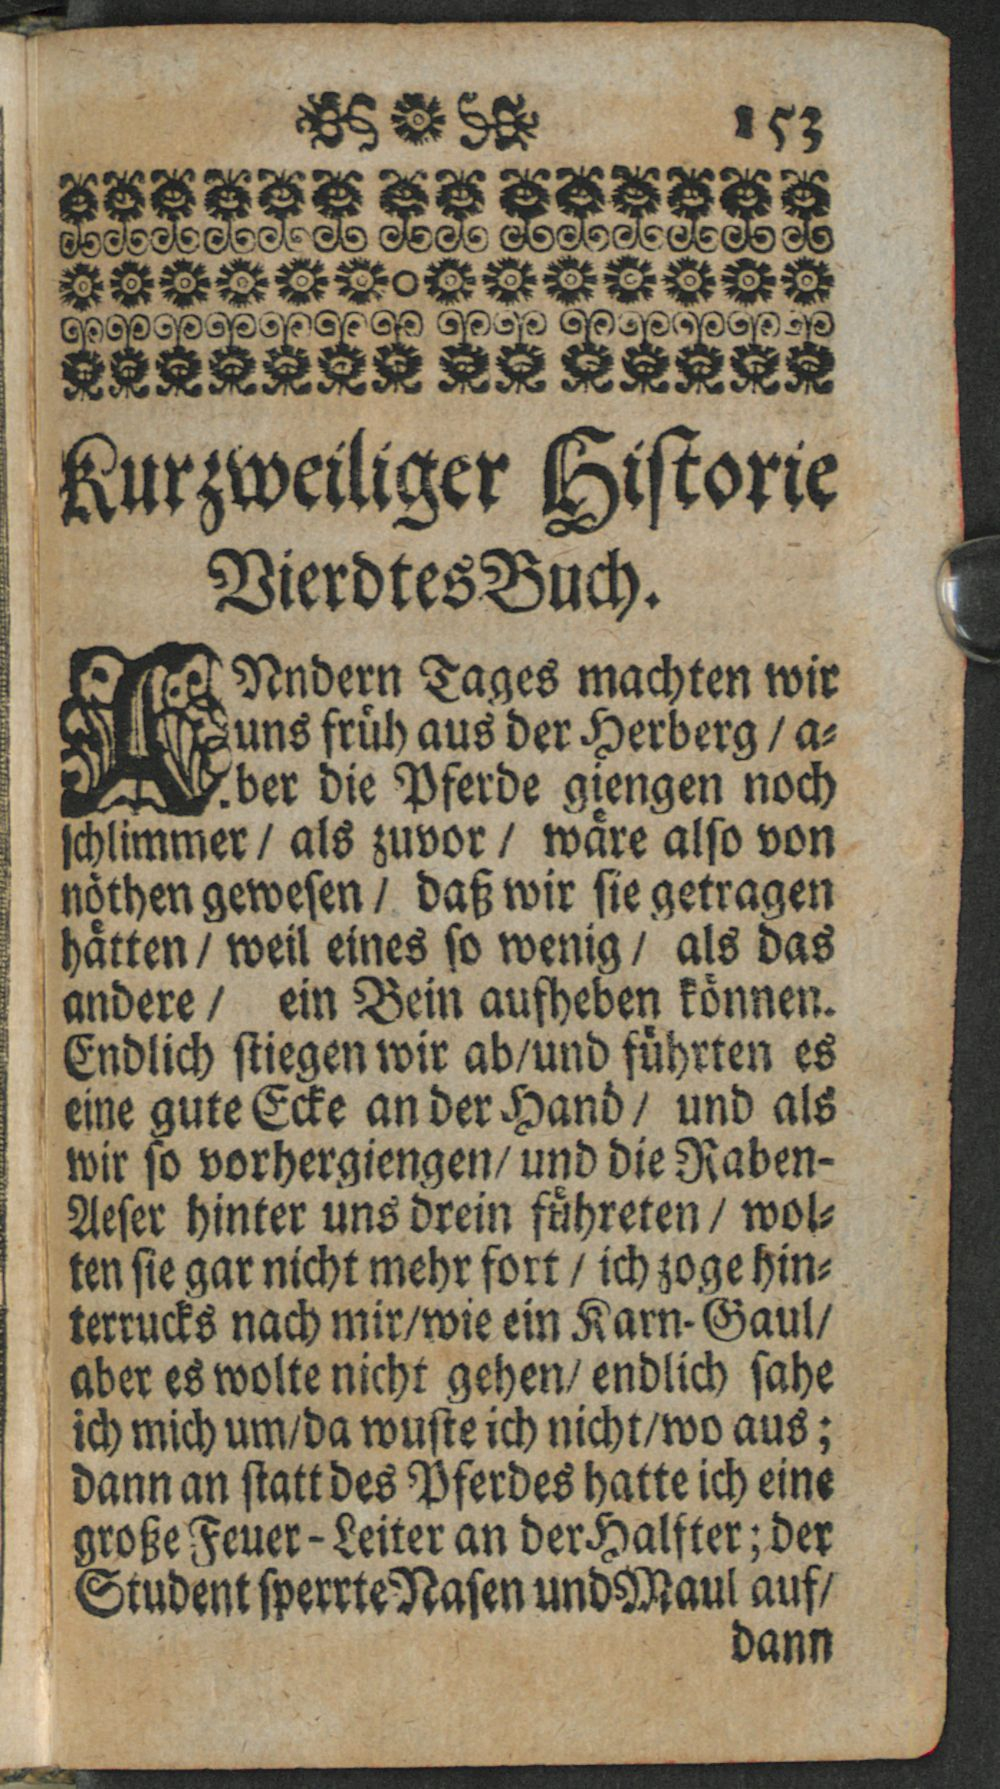 153
Kurzweiliger Hiſtorie
Vierdtes Buch.
ANndern Tages machten wir
uns fruͤh aus der Herberg / a⸗
ber die Pferde giengen noch
ſchlimmer / als zuvor / waͤre alſo von
noͤthen geweſen / daß wir ſie getragen
haͤtten / weil eines ſo wenig / als das
andere / ein Bein aufheben koͤnnen.
Endlich ſtiegen wir ab/und fuͤhrten es
eine gute Ecke an der Hand / und als
wir ſo vorhergiengen/ und die Raben-
Aeſer hinter uns drein fuͤhreten / wol⸗
ten ſie gar nicht mehr fort / ich zoge hin⸗
terrucks nach mir/wie ein Karn-Gaul/
aber es wolte nicht gehen/ endlich ſahe
ich mich um/da wuſte ich nicht/wo aus;
dann an ſtatt des Pferdes hatte ich eine
große Feuer-Leiter an der Halfter; der
Student ſperrte Naſen und Maul auf/
dann